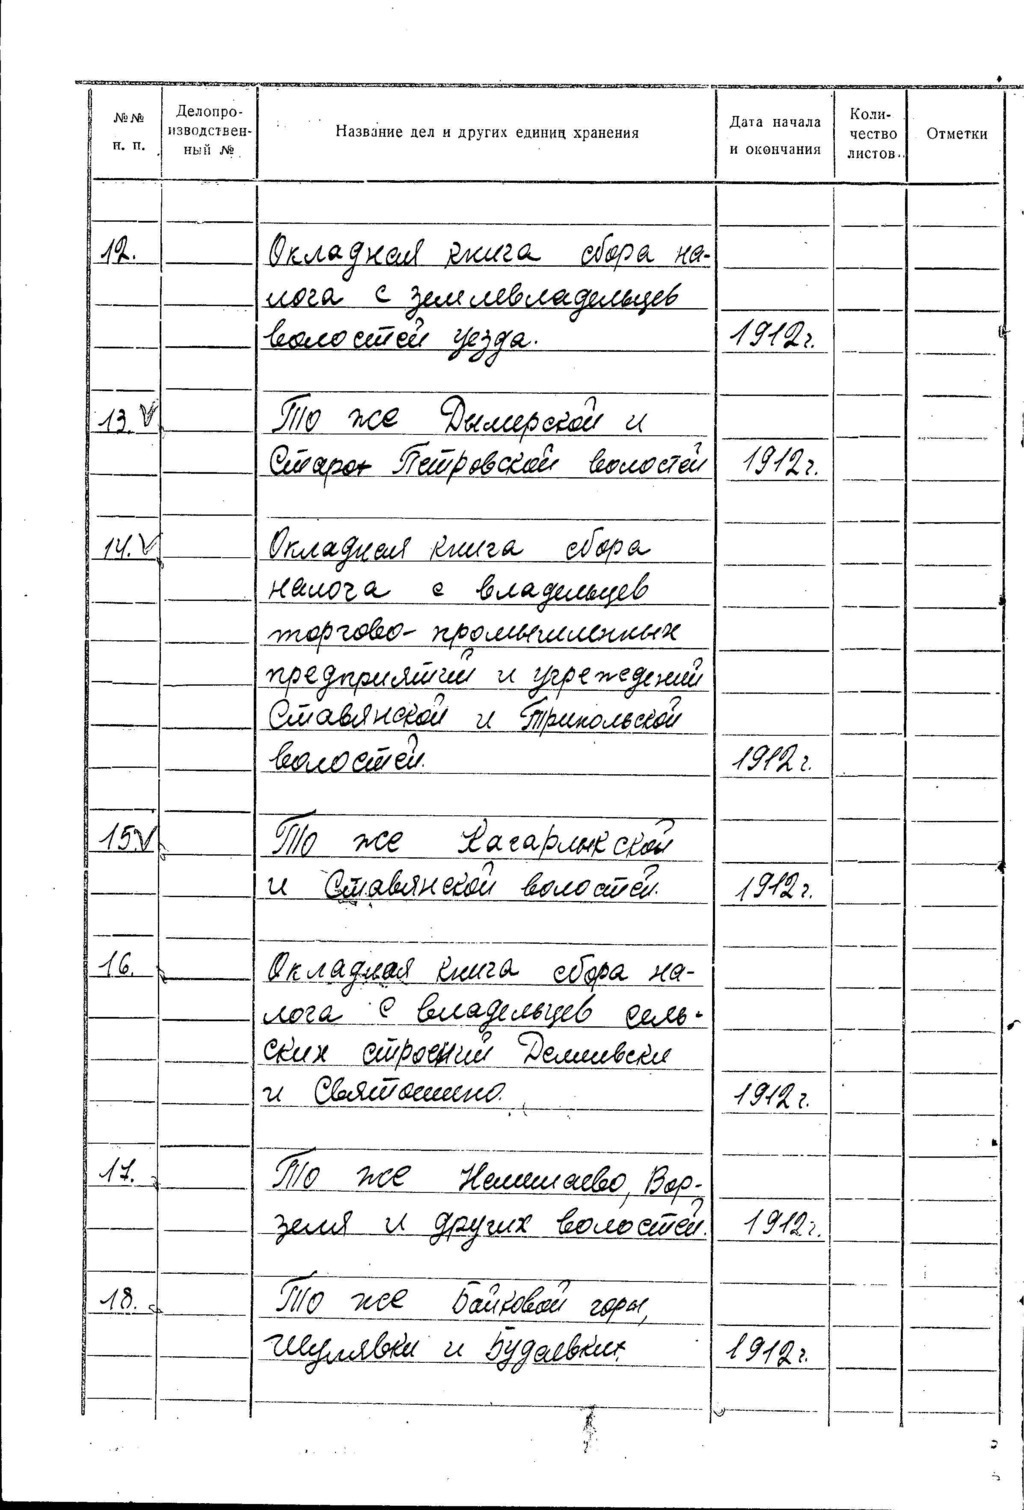 №№ п. п.
Делопро-
изводствен-
ный №
Название дел и других единиц хранения
Дата начала
и окончания
Коли-
чество
листов
Отметки
12. Окладная книга сбора на-
лога с землевладельцев
волостей уезда. 1912г.
13. V То же Дымерской и
Старо Петровской волостей 1912г.
14. V Окладная книга сбора
налога с владельцев
торгово-промышленных
предприятий и учреждений
Ставянской и Трипольской
волостей. 1912г.
15 V То же Кагарлыкской
и Ставянской волостей. 1912г.
16. Окладная книга сбора на-
лога с владельцев сель-
ских строений Демиевски
и Святошино. 1912г.
17. То же Немешаево, Вор-
зеля и других волостей. 1912г.
18. То же Байковой горы,
Шулявки и Будаевки. 1912г.